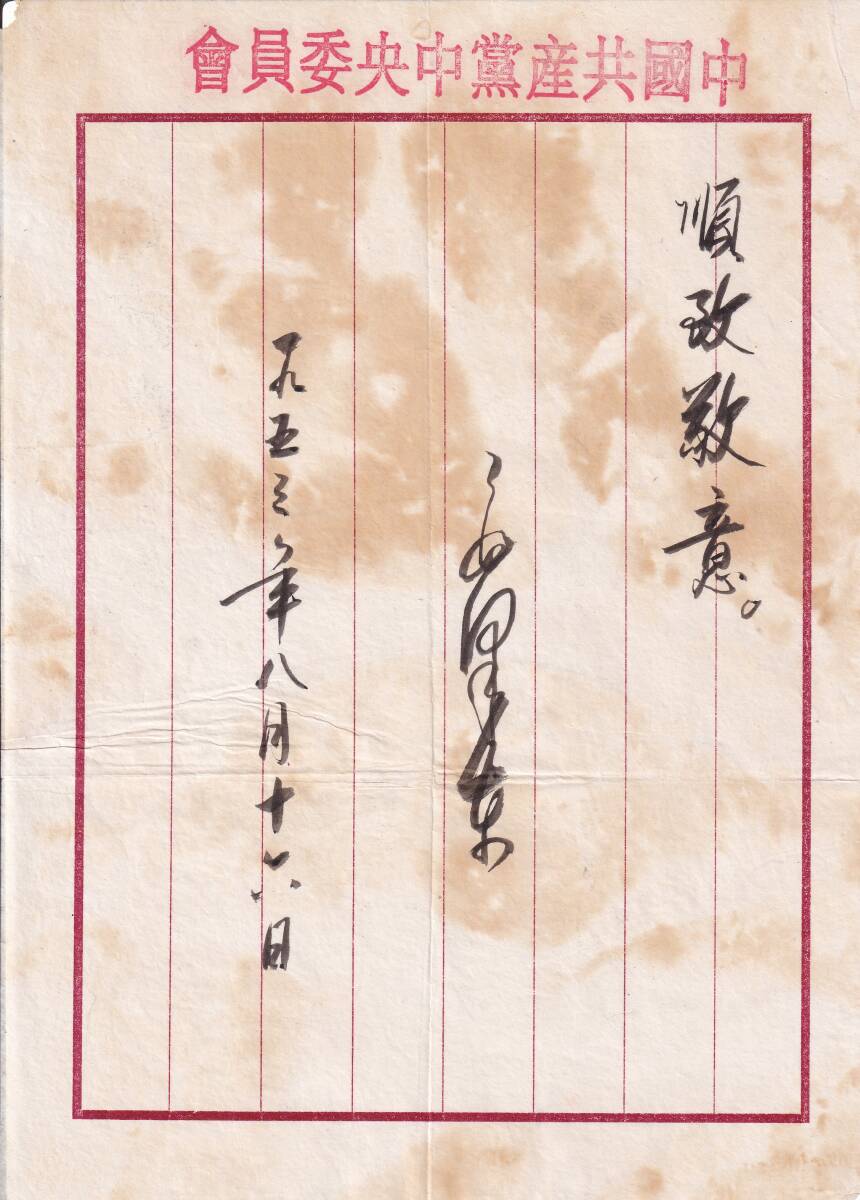 中國共産黨中央委員會
順致敬意。
毛澤東
一九五三年八月十六日